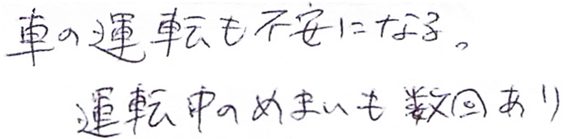 車の運転も不安になる。
運転中のめまいも数回あり